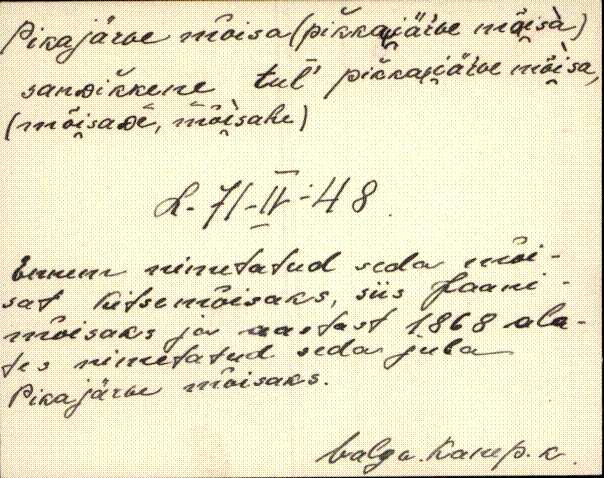 Pikajärve mõisa (pikkajäŕve mõisà)
sandikkene tuĺ pikkajäŕve mõisa,
(mõisade, mõisahe)
L. 71-IV-48.
Ennem nimetatud seda mõi-
sat Kitsemõisaks, siis Jaani-
mõisaks ja aastast 1868 ala-
tes nimetatud seda juba
Pikajärve mõisaks.
Valga. Kanep. k.